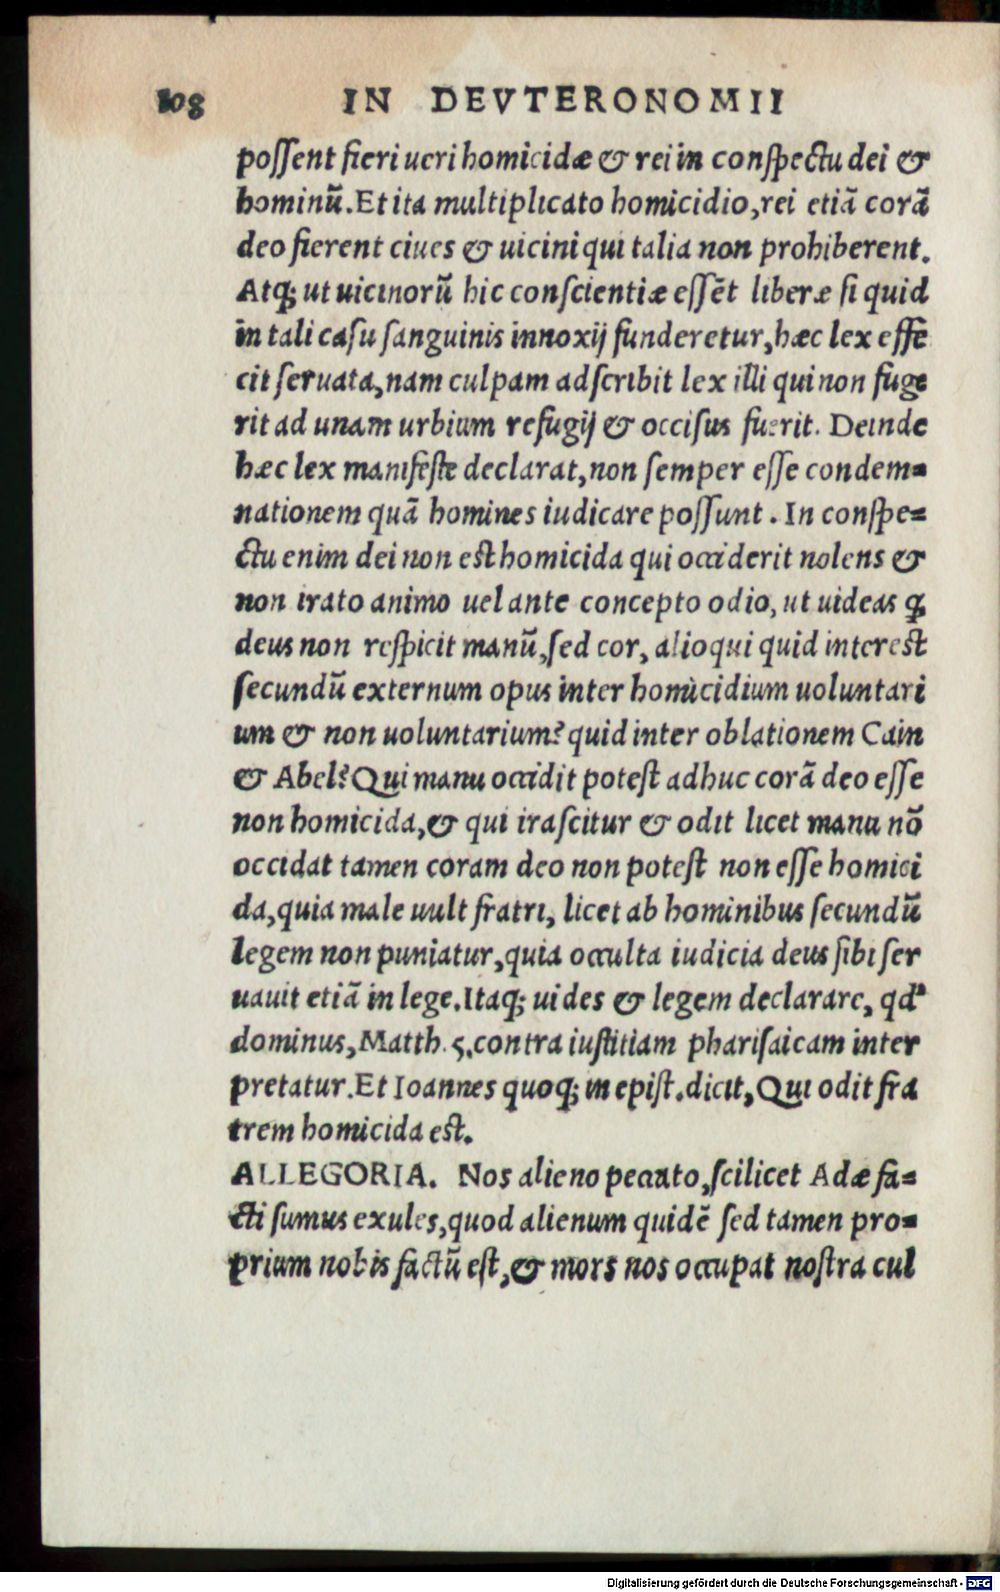 108 IN DEVTERONOMII
possent fieri ueri homicidæ & rei in conspectu dei &
hominū. Et ita multiplicato homicidio, rei etiā corā
deo fierent ciues & uicini qui talia non prohiberent.
Atq; ut uicinorū hic conscientiæ essēt liberæ si quid
in tali casu sanguinis innoxij funderetur, hæc lex effe
cit seruata, nam culpam adscribit lex illi qui non fuge
rit ad unam urbium refugij & occisus fuerit. Deinde
hæc lex manifeste declarat, non semper esse condem=
nationem quā homines iudicare possunt. In conspe=
ctu enim dei non est homicida qui occiderit nolens &
non irato animo uel ante concepto odio, ut uideas ꝙ
deus non respicit manū, sed cor, alioqui quid interest
secundū externum opus inter homicidium uoluntari
um & non uoluntarium? quid inter oblationem Cain
& Abel? Qui manu occidit potest adhuc corā deo esse
non homicida, & qui irascitur & odit licet manu nō
occidat tamen coram deo non potest non esse homici
da, quia male uult fratri, licet ab hominibus secundū
legem non puniatur, quia occulta iudicia deus sibi ser
uauit etiā in lege. Itaq; uides & legem declarare, qd'
dominus, Matth. 5. contra iustitiam pharisaicam inter
pretatur. Et Ioannes quoq; in epist. dicit, Qui odit fra
trem homicida est.
ALLEGORIA. Nos alieno peccato, scilicet Adæ fa=
cti sumus exules, quod alienum quidē sed tamen pro=
prium nobis factū est, & mors nos occupat nostra cul
Digitalisierung gefördert durch die Deutsche Forschungsgemeinschaft - DFG